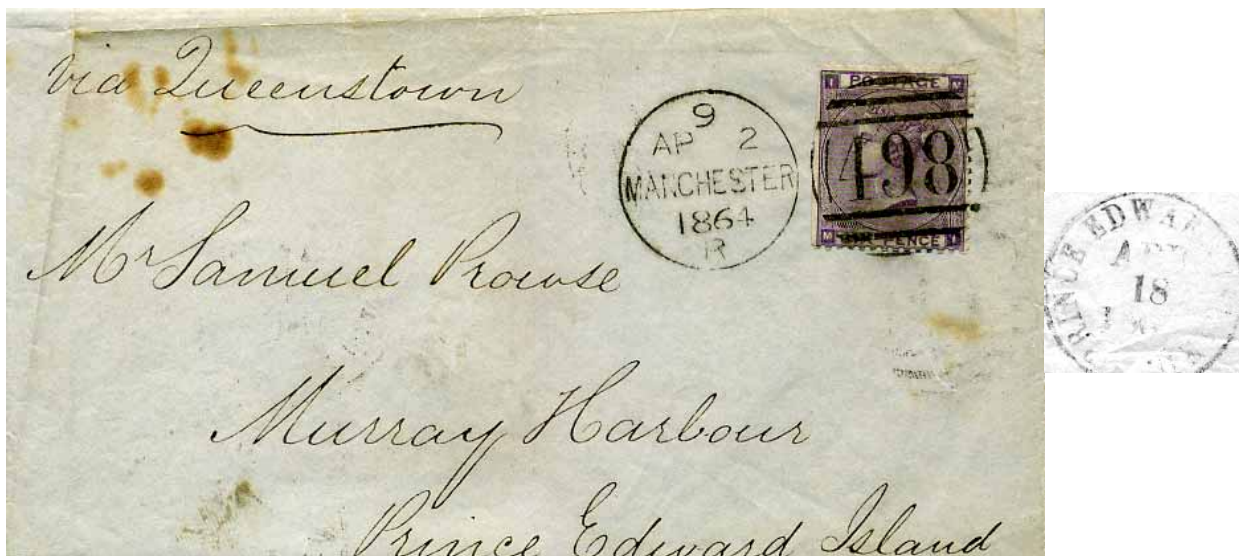 via Queenstown
9
AP 2
MANCHESTER
1864
R
POSTAGE
498
SIX PENCE
Mr Samuel Prowse
Murray Harbour
Prince Edward Island
PRINCE EDWA
18